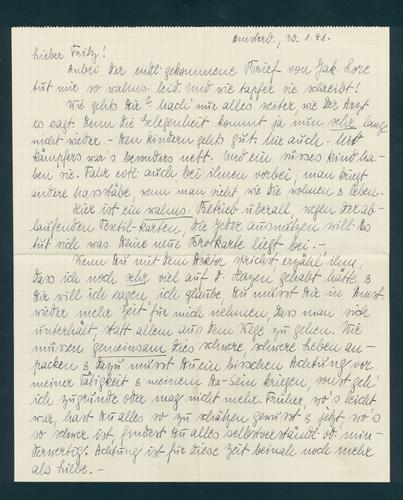 Amsterd., 30.1.41.
Lieber Fritz!
Anbei der endl. gekommene Brief von Jak. Lore
tut mir so wahns. leid. Und wie tapfer sie schreibt!
Wie gehts Dir? Mach nur alles weiter, wie der Arzt
es sagt. Denn die Gelegenheit kommt ja nun sehr lange
nicht wieder. – Den Kindern gehts gut. Mir auch. Mit
Kämpfers war's besonders nett. Und ein süsses Kind ha-
ben sie. Fahr evtl. auch bei ihnen vorbei; man kriegt
andere Massstäbe, wenn man sieht wie die wohnen & leben.
Hier ist ein wahns. Betrieb überall, wegen der ab-
laufenden Textil-Karten, die jeder ausnützen will. Es
tut sich was. Deine neue Brotkarte liegt bei. –
Wenn Du mit dem Doktor sprichst erzähl ihm,
dass ich noch sehr viel auf d. Herzen gehabt hätte, &
Dir will ich sagen, ich glaube, Du musst Dir in Amst.
wieder mehr Zeit für mich nehmen, dass man sich
unterhält, statt allem aus dem Wege zu gehen. Wir
müssen gemeinsam dies schwere, schwere Leben an-
packen & dazu musst Du ein bisschen Achtung vor
meiner Tätigkeit & meinem Da-Sein kriegen, sonst geh'
ich zugrunde oder mag nicht mehr. Früher, wo's leicht
war, hast Du alles so zu schätzen gewusst & jetzt, wo's
so schwer ist, findest Du alles selbstverständl. od. min-
derwertig. Achtung ist für diese Zeit beinah noch mehr
als Liebe. –